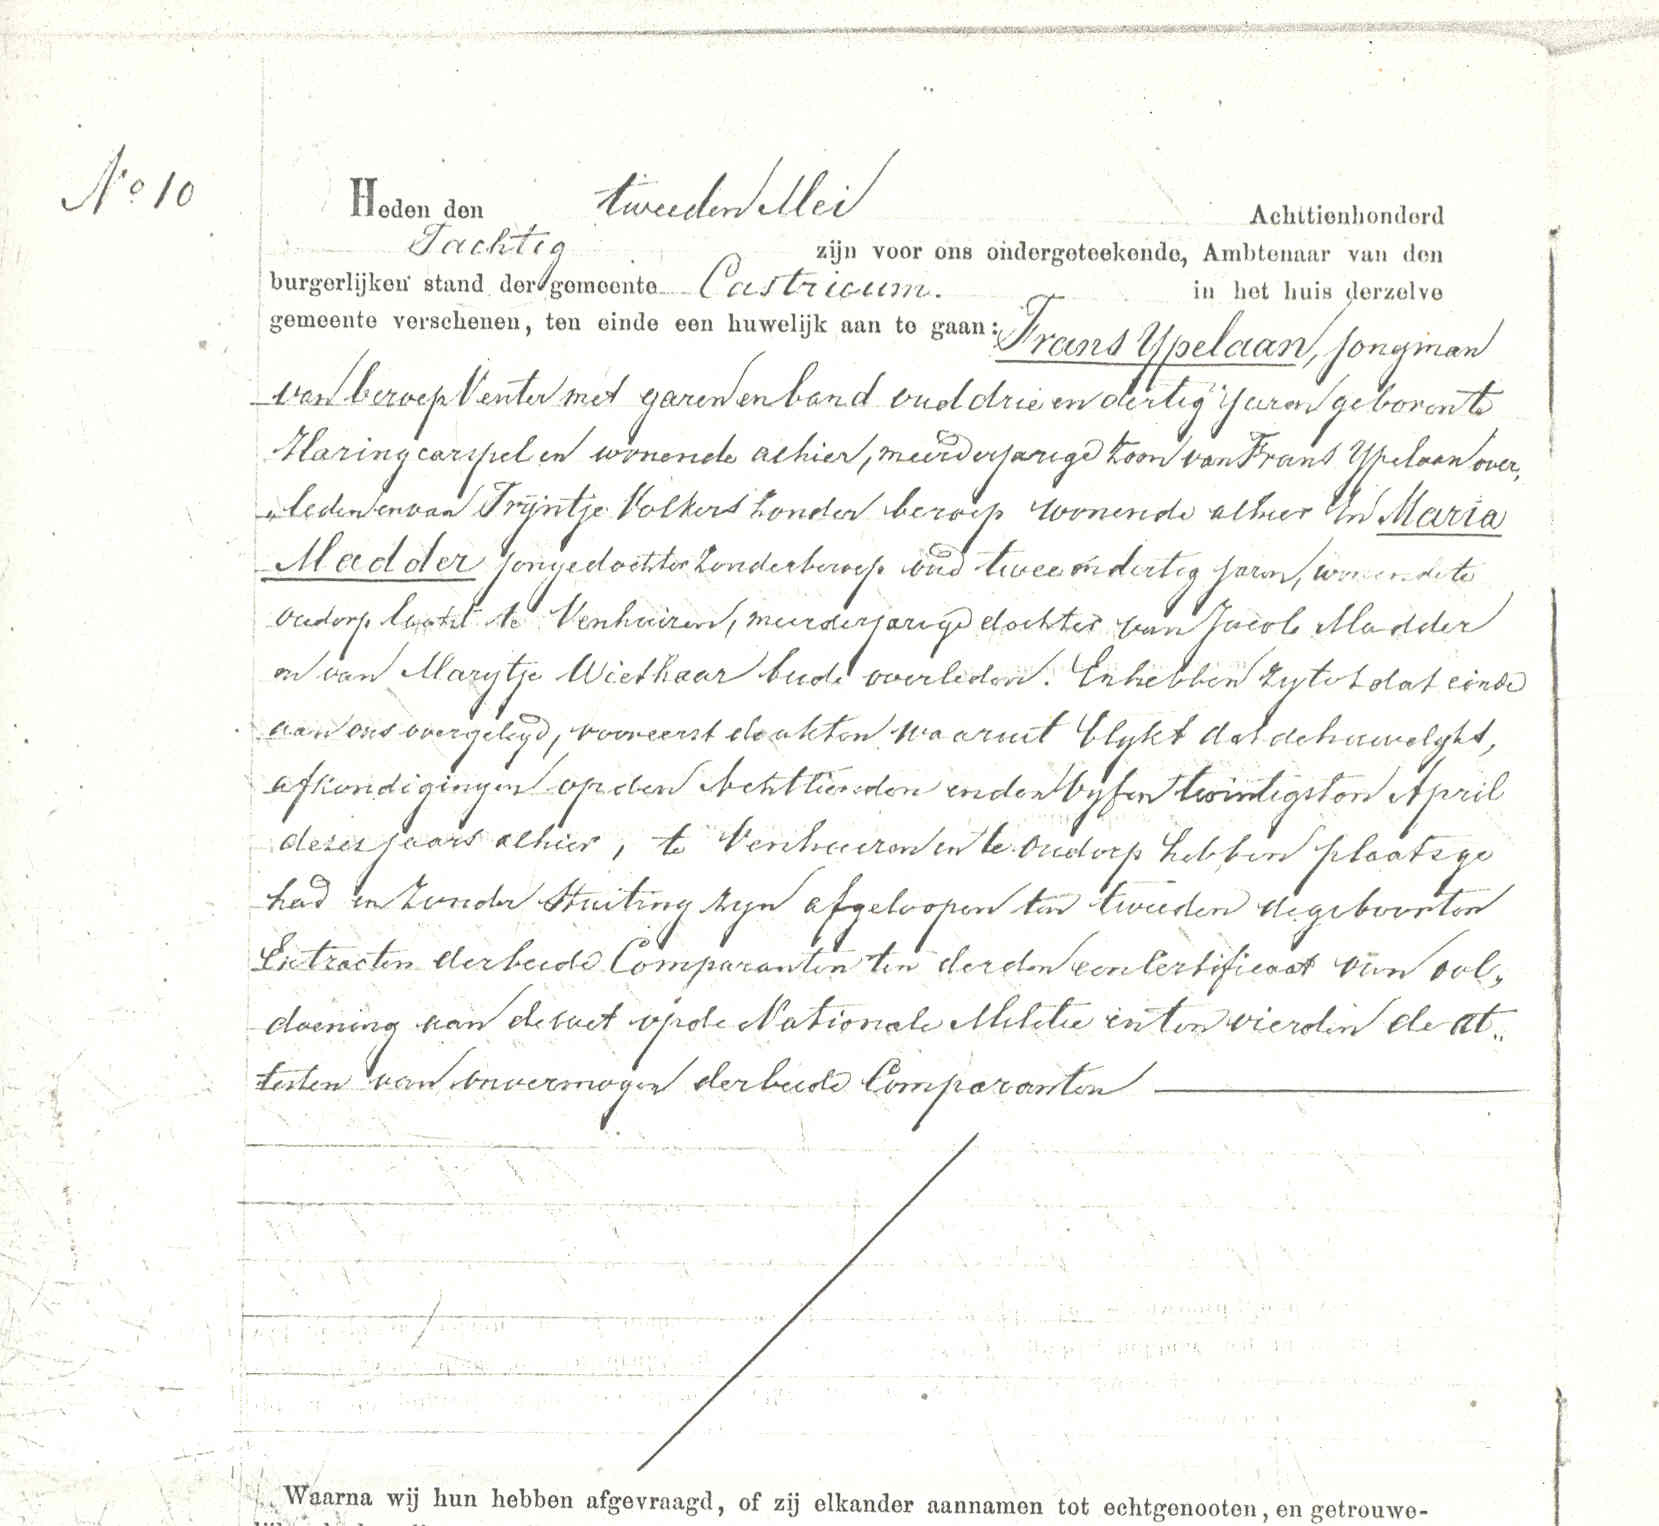 No 10
Heden den tweeden Mei Achttienhonderd
Tachtig zijn voor ons ondergeteekende, Ambtenaar van den
burgerlijken stand der gemeente Castricum. in het huis derzelve
gemeente verschenen, ten einde een huwelijk aan te gaan: Frans Ypelaan, jongman
van beroep Venter met garen en band oud drie en dertig jaren geboren te
Haringcarspel en wonende alhier, meerderjarige zoon van Frans Ypelaan over„
„leden en van Trijntje Volkers zonder beroep wonende alhier En Maria
Madder jongedochter zonder beroep oud twee en dertig jaren, wonende te
oudorp laatst te Venhuizen, meerderjarige dochter van Jacob Madder
en van Marytje Wiethaar beide overleden. En hebben zy tot dat einde
aan ons overgelegd, vooreerst de akten waaruit blykt dat de huwelyks,
afkondigingen op den Achttienden en den vyfen twintigsten April
dezes jaars alhier, te Venhuizen en te Oudorp hebben plaats ge
had en zonder Stuiting zyn afgeloopen ten tweeden de geboorten
Extracten der beide Comparanten ten derden een Certificaat van vol„
doening aan de wet op de Nationale Militie en ten vierden de at„
testen van onvermogen der beide Comparanten
Waarna wij hun hebben afgevraagd, of zij elkander aannamen tot echtgenooten, en getrouwe-